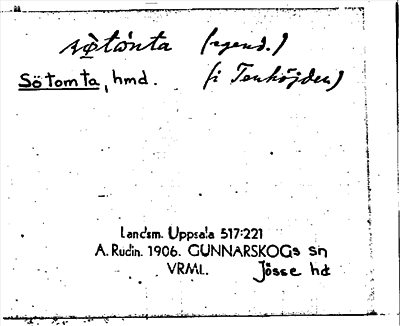 sötónta (egend.)
Sötomta, hmd. (i Tenhöjden)
Landsm. Uppsala 517:221
A. Rudin. 1906. GUNNARSKOGs sn
VRML. Jösse hd